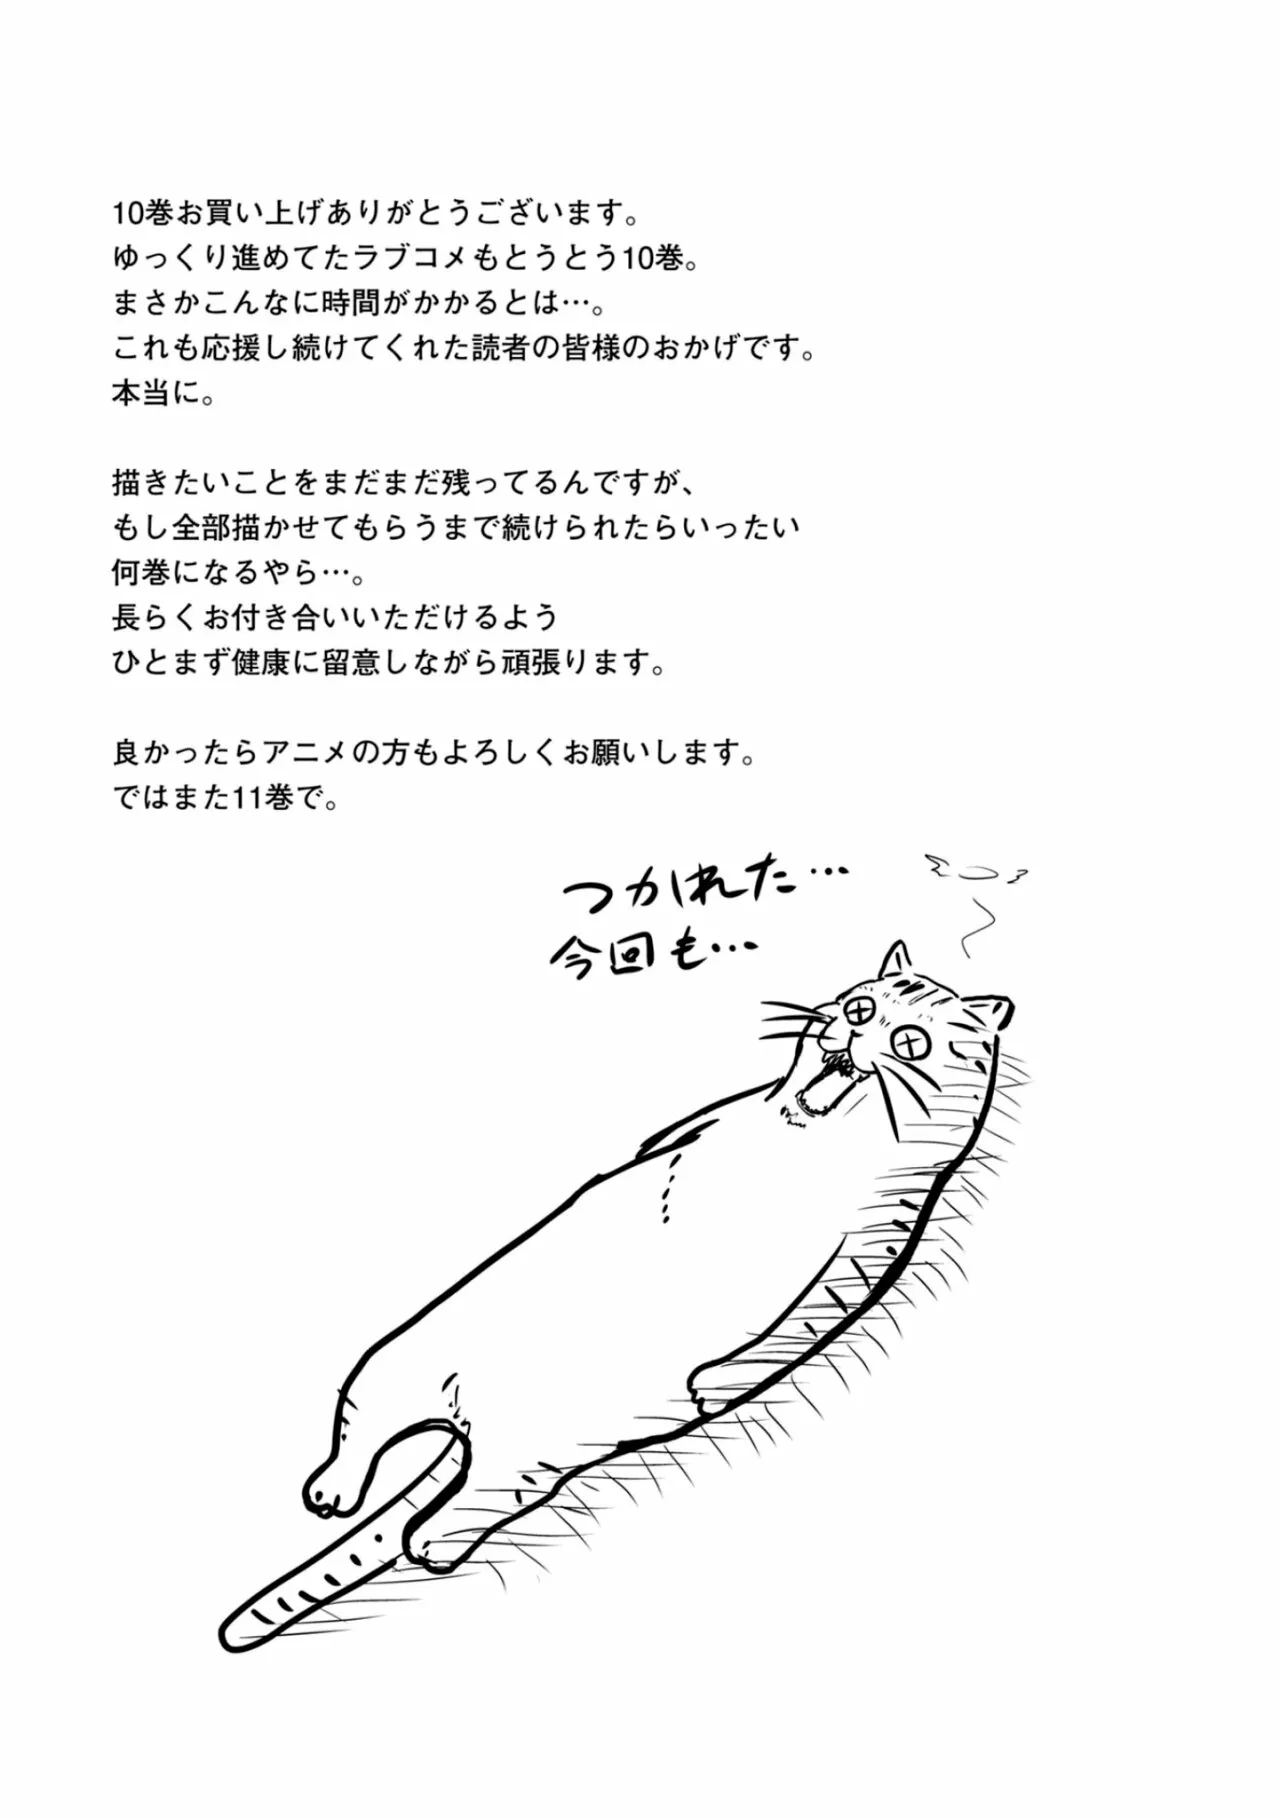 10巻お買い上げありがとうございます。
ゆっくり進めてたラブコメもとうとう10巻。
まさかこんなに時間がかかるとは…。
これも応援し続けてくれた読者の皆様のおかげです。
本当に。
描きたいことをまだまだ残ってるんですが、
もし全部描かせてもらうまで続けられたらいったい
何巻になるやら…。
長らくお付き合いいただけるよう
ひとまず健康に留意しながら頑張ります。
良かったらアニメの方もよろしくお願いします。
ではまた11巻で。
つかれた…
今回も…